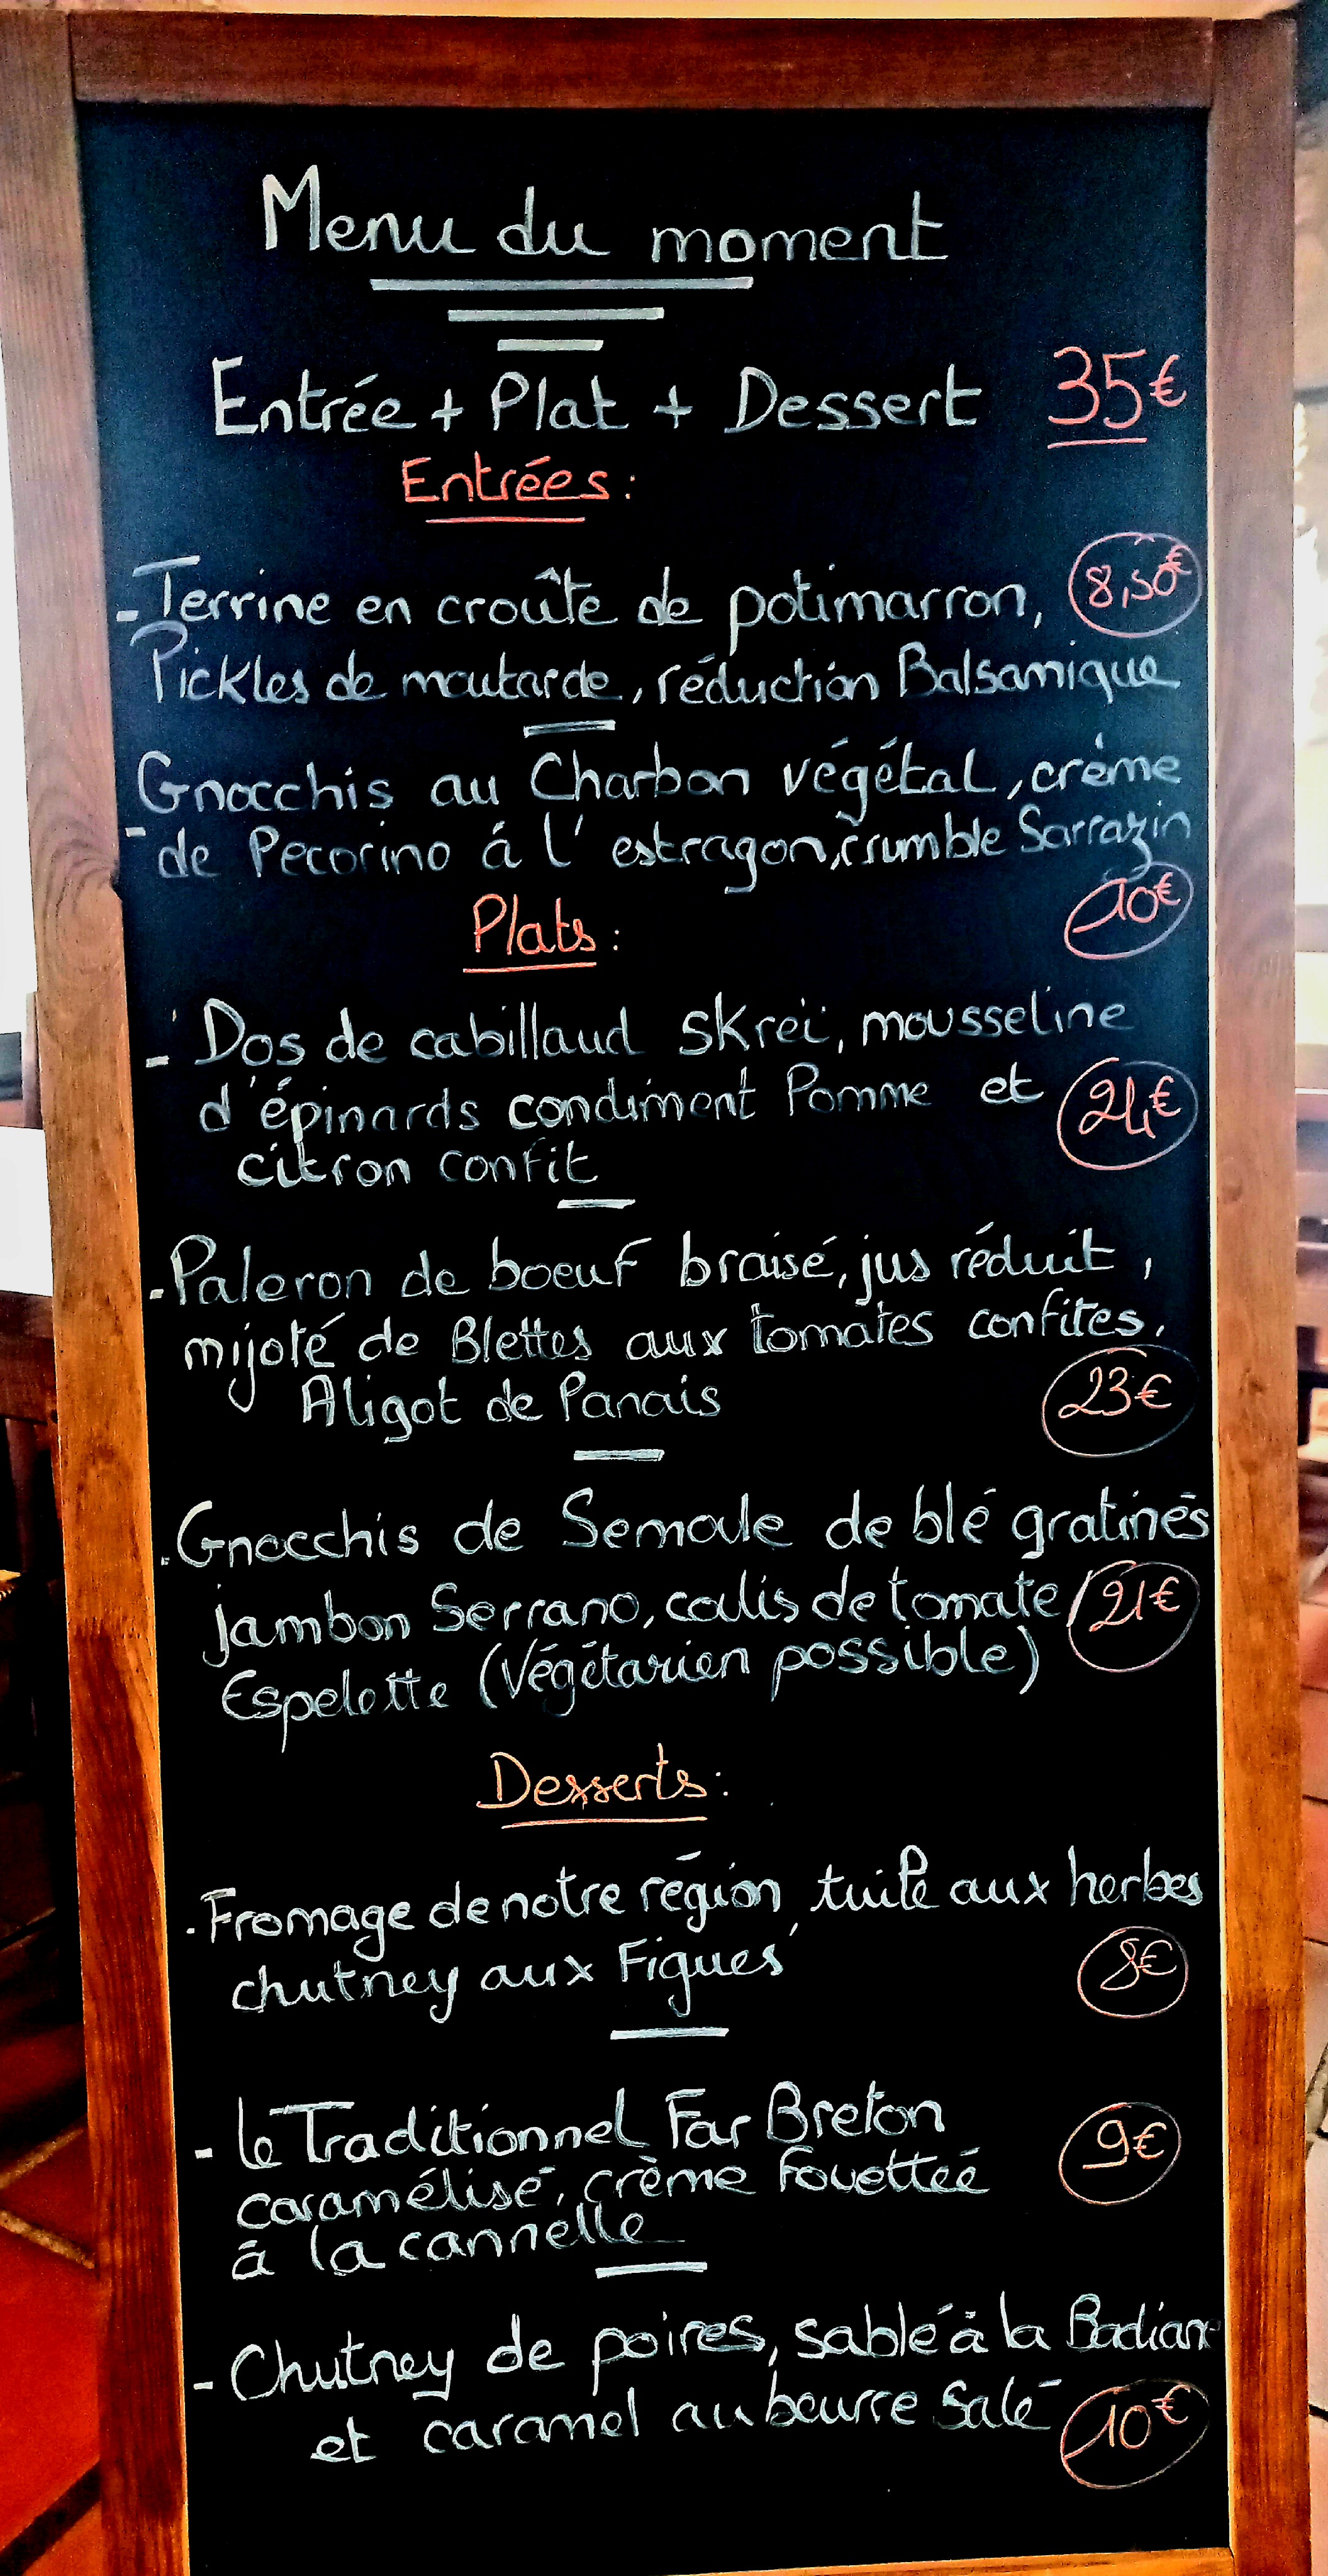 Menu du moment
Entrée + Plat + Dessert 35€
Entrées :
- Terrine en croûte de potimarron, 8,50€
Pickles de moutarde, réduction Balsamique
Gnocchis au Charbon végétal, crème
- de Pecorino á l' estragon, crumble Sarrazin
10€
Plats :
- Dos de cabillaud skrei, mousseline
d'épinards condiment Pomme et 24€
citron confit
- Paleron de boeuf braisé, jus réduit,
mijoté de Blettes aux tomates confites,
Aligot de Panais 23€
- Gnocchis de Semoule de blé gratinés
jambon Serrano, coulis de tomate / 21€
Espelette (Végétarien possible)
Desserts :
- Fromage de notre région, tuile aux herbes
chutney aux Figues 8€
- Le Traditionnel Far Breton
caramélisé, crème fouetteé 9€
à la cannelle
- Chutney de poires, sablé à la Badiane
et caramel au beurre Salé 10€